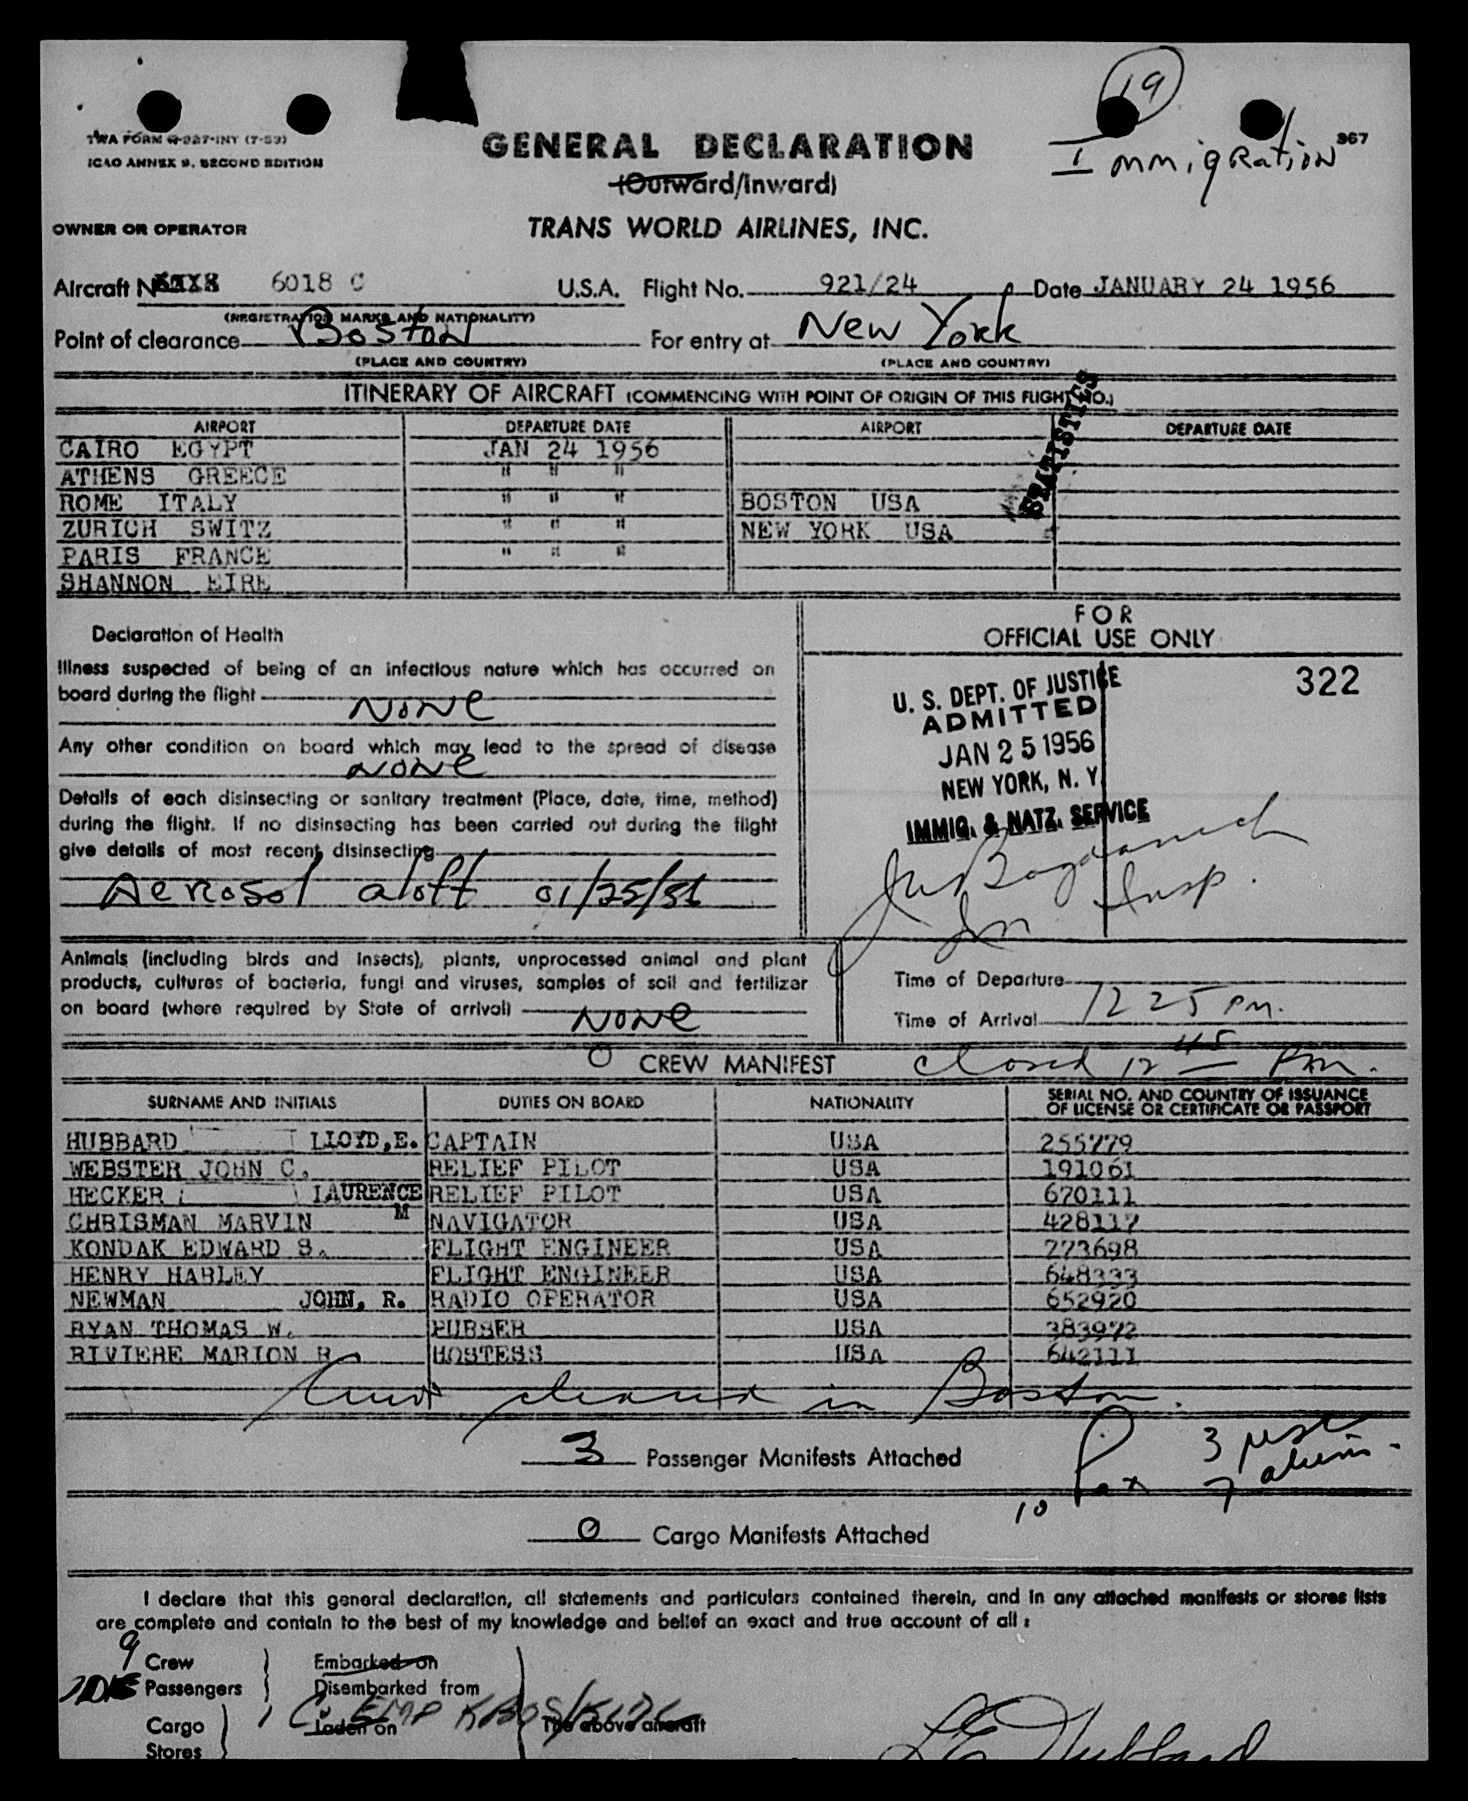 19
TWA FORM Q-927-INY (7-53)
ICAO ANNEX 9, SECOND EDITION
GENERAL DECLARATION
367
Immigration
(Outward/Inward)
OWNER OR OPERATOR
TRANS WORLD AIRLINES, INC.
Aircraft N 6018 C U.S.A. Flight No. 921/24 Date JANUARY 24 1956
(REGISTRATION MARKS AND NATIONALITY)
Point of clearance Boston For entry at New York
(PLACE AND COUNTRY) (PLACE AND COUNTRY)
ITINERARY OF AIRCRAFT (COMMENCING WITH POINT OF ORIGIN OF THIS FLIGHT NO.)
STATISTICS
AIRPORT DEPARTURE DATE AIRPORT DEPARTURE DATE
CAIRO EGYPT JAN 24 1956
ATHENS GREECE " " "
ROME ITALY " " " BOSTON USA
ZURICH SWITZ " " " NEW YORK USA
PARIS FRANCE " " "
SHANNON EIRE
FOR
OFFICIAL USE ONLY
Declaration of Health
Illness suspected of being of an infectious nature which has occurred on
board during the flight NONE
Any other condition on board which may lead to the spread of disease
NONE
Details of each disinsecting or sanitary treatment (Place, date, time, method)
during the flight. If no disinsecting has been carried out during the flight
give details of most recent disinsecting
Aerosol aloft 01/25/56
322
U. S. DEPT. OF JUSTICE
ADMITTED
JAN 25 1956
NEW YORK, N. Y.
IMMIG. & NATZ. SERVICE
Insp.
Animals (including birds and insects), plants, unprocessed animal and plant
products, cultures of bacteria, fungi and viruses, samples of soil and fertilizer
on board (where required by State of arrival) NONE
Time of Departure
Time of Arrival 12 25 PM.
0 CREW MANIFEST closed 12 45 PM.
SURNAME AND INITIALS DUTIES ON BOARD NATIONALITY SERIAL NO. AND COUNTRY OF ISSUANCE
OF LICENSE OR CERTIFICATE OR PASSPORT
HUBBARD LLOYD,E. CAPTAIN USA 255779
WEBSTER JOHN C. RELIEF PILOT USA 191061
HECKER LAURENCE M RELIEF PILOT USA 670111
CHRISMAN MARVIN NAVIGATOR USA 428117
KONDAK EDWARD S. FLIGHT ENGINEER USA 773698
HENRY HARLEY FLIGHT ENGINEER USA 648333
NEWMAN JOHN, R. RADIO OPERATOR USA 652920
RYAN THOMAS W. PURSER USA 383972
RIVIERE MARION R. HOSTESS USA 642111
Crew cleared in Boston.
3 Passenger Manifests Attached
10 Pax 3 usc
7 aliens.
0 Cargo Manifests Attached
I declare that this general declaration, all statements and particulars contained therein, and in any attached manifests or stores lists
are complete and contain to the best of my knowledge and belief an exact and true account of all :
9 Crew Embarked on
Passengers Disembarked from
Cargo Laden on The above aircraft
Stores
LE Hubbard